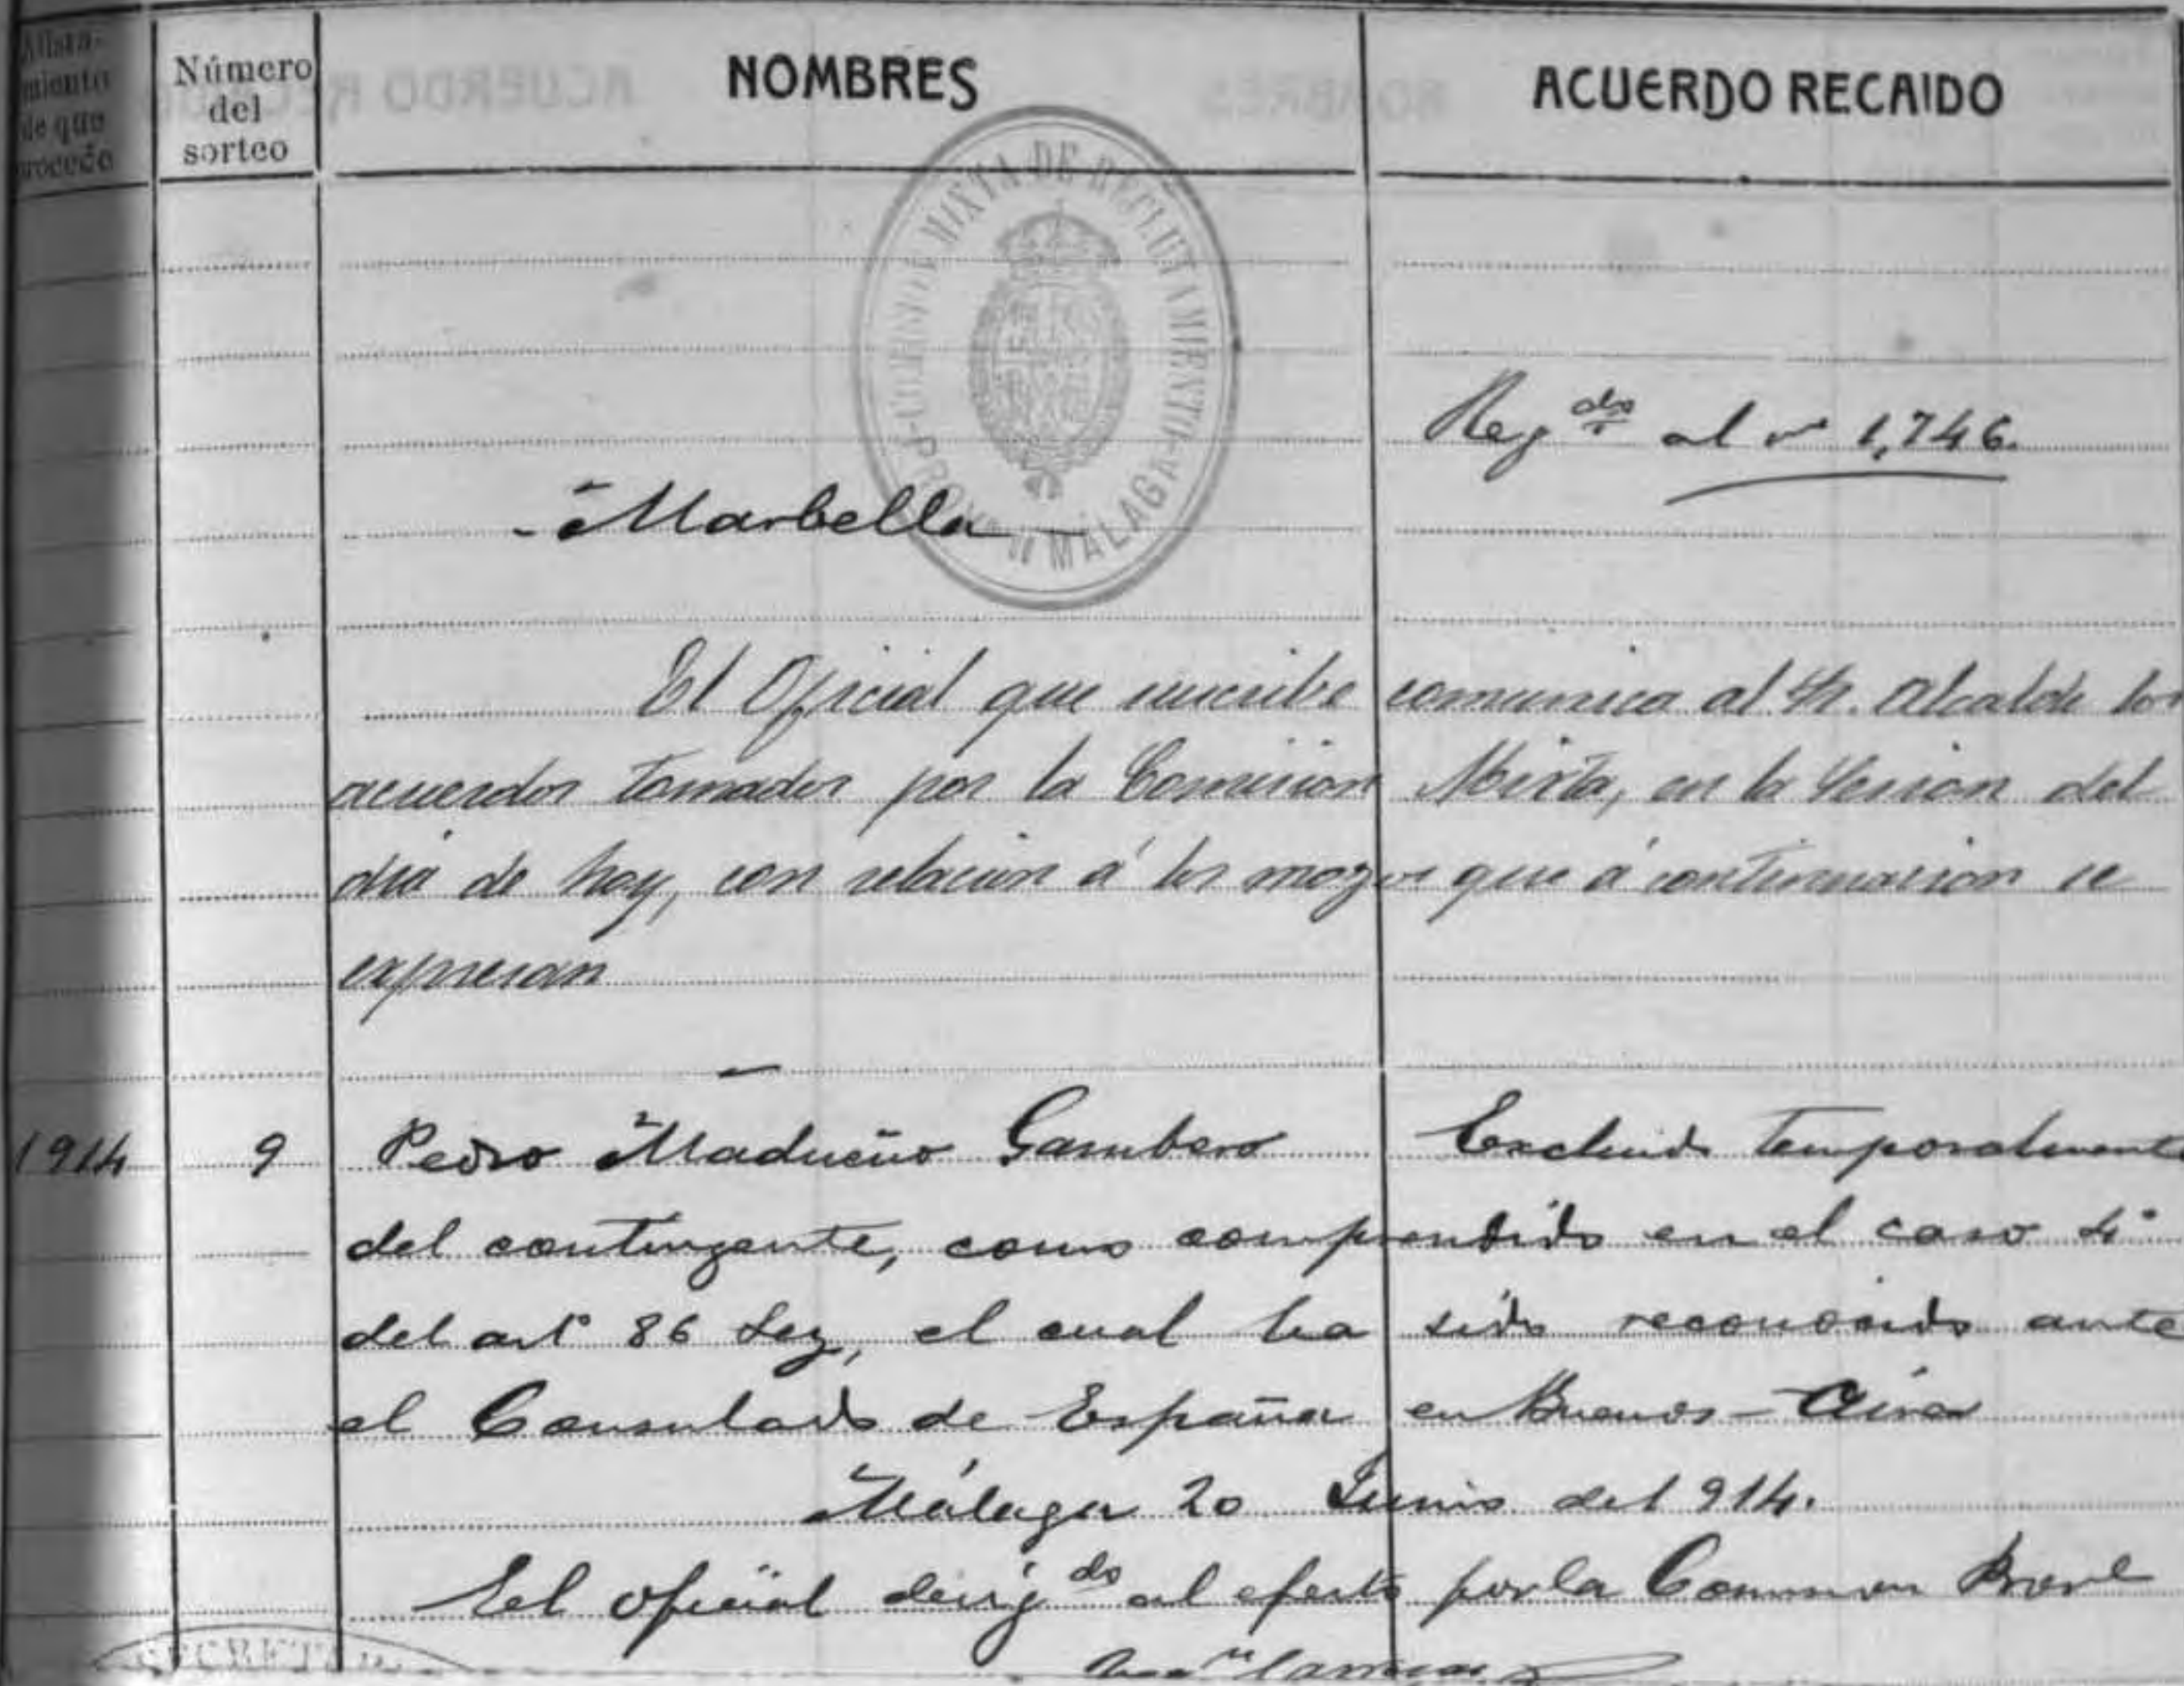 Alista-
miento
de que
procede
Número
del
sorteo
NOMBRES
ACUERDO RECAIDO
COMISIÓN MIXTA DE RECLUTAMIENTO
MÁLAGA
Reg.do al nº 1,746.
- Marbella -
El Oficial que suscribe comunica al Sr. Alcalde los
acuerdos tomados por la Comision Mixta, en la Sesion del
dia de hoy, con relacion á los mozos que á continuacion se
expresan
1914 9 Pedro Madueño Gambero Excluido temporalmente
del contingente, como comprendido en el caso 4º
del artº 86 Ley, el cual ha sido reconocido ante
el Consulado de España en Buenos-Aires
Málaga 20 Junio del 914.
El oficial desigdo al efecto por la Comision
SECRETAR